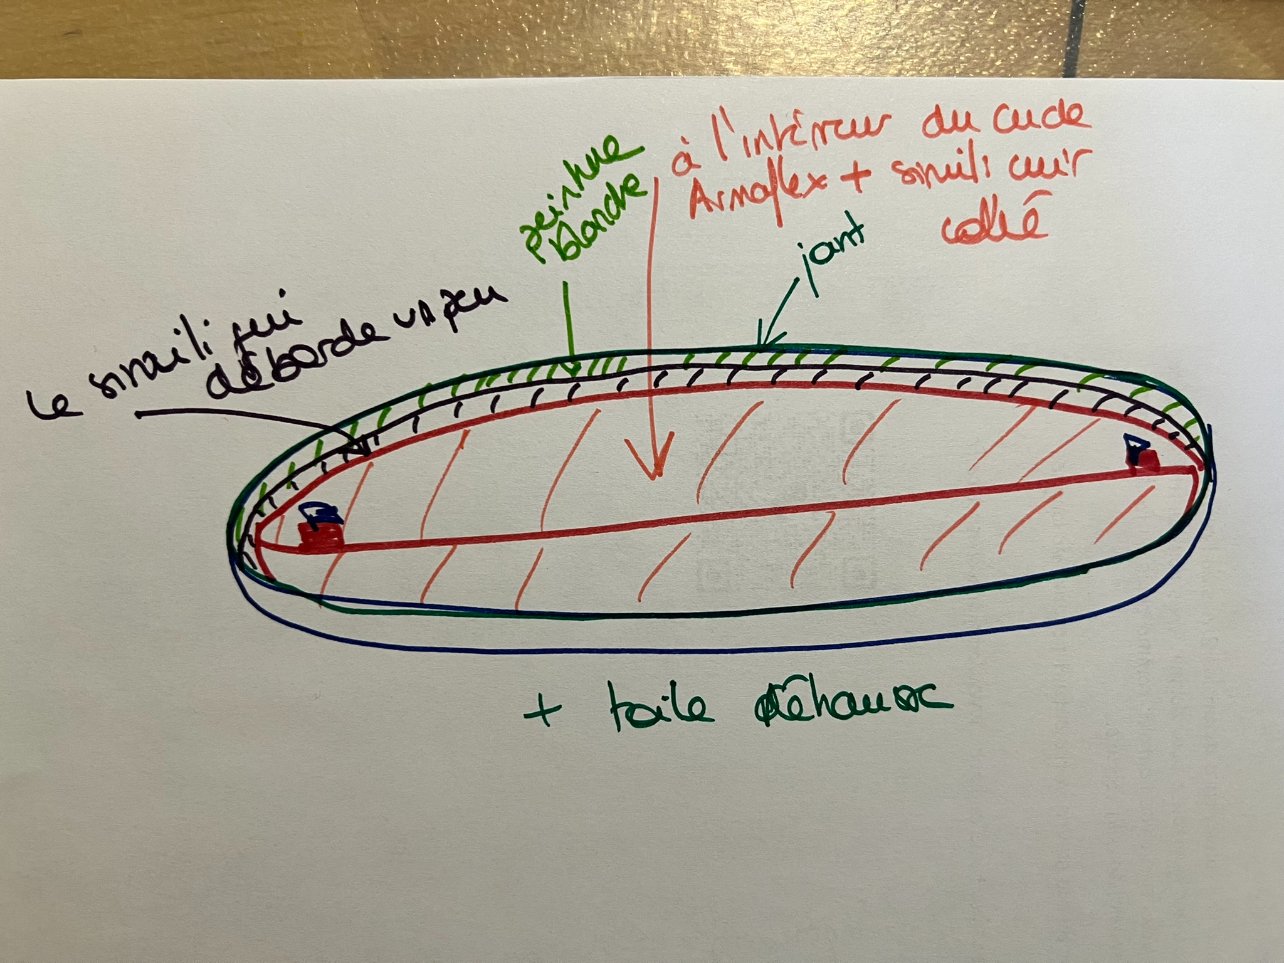 à l'intérieur du cercle
Armaflex + simili cuir
collé
peinture
blanche
joint
le simili qui
déborde un peu
+ toile